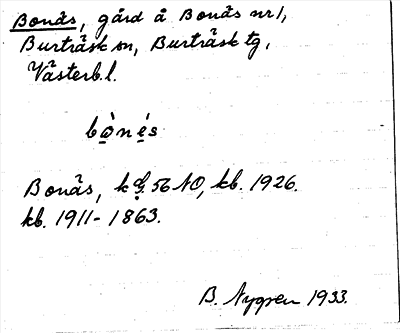 Bonäs, gård å Bonäs nr 1,
Burträsk sn, Burträsk tg,
Västerb. l.
bònés
Bonäs, kbl. 56 NO, kb. 1926.
kb. 1911-1863.
B. Nygren 1933.